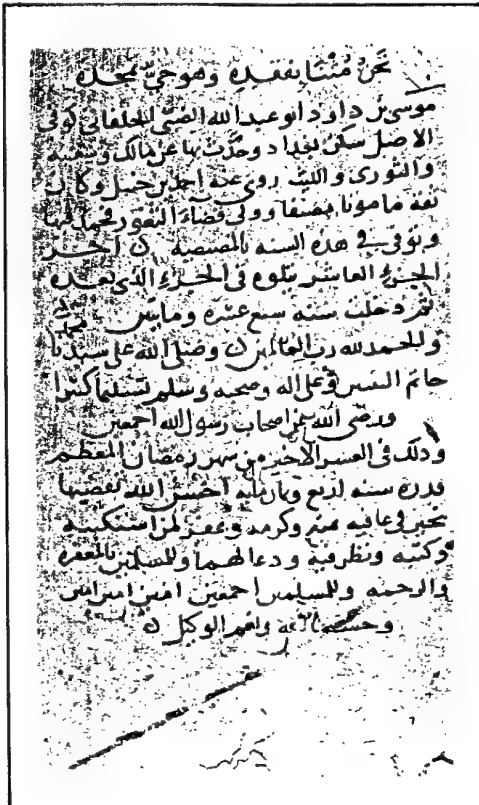 نحن متنا بفقده وهو حي بمجده
موسى بن داود ابو عبد الله الضبي الخلقاني كوفي
الاصل سكن بغداد وحدث بها عن مالك وشعبة
والثوري والليث روى عنه احمد بن حنبل وكان
ثقة مامونا مصنفا وولي قضاء الثغور فحمد فيها
وتوفي في هذه السنه بالمصيصه ن اخر
الجزء العاشر يتلوه في الجزء الذي بعده
ثم دخلت سنة سبع عشرة ومايتين
والحمد لله رب العالمين ن وصلى الله على سيدنا محمد
خاتم النبيين وعلى اله وصحبه وسلم تسليما كثيرا
ورضي الله عن اصحاب رسول الله اجمعين
وذلك في العشر الاخير من شهر رمضان المعظم
قدره سنه اربع وثمان مايه احسن الله تقضيها
بخير في عافيه بمنه وكرمه وغفر لمن استكتبه
وكتبه ونظر فيه ودعا لهما وللمسلمين بالمغفره
والرحمه وللمسلمين اجمعين امين امين امين
وحسبنا الله ونعم الوكيل ن